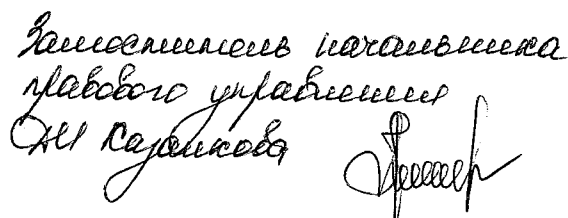 Заместитель начальника
правового управления
Казанкова